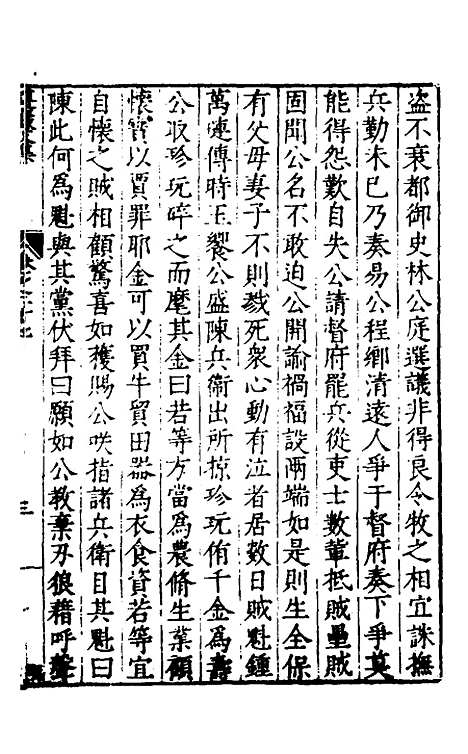 盜不衰都御史林公庭選議非得良令牧之相宜誅撫
兵勤未已乃奏易公程鄉清遠人爭于督府奏下爭莫
能得怨歎自失公請督府罷兵從吏士數輩抵賊壘賊
固聞公名不敢迫公開諭禍福設兩端如是則生全保
有父母妻子不則戮死衆心動有泣者居數日賊魁鍾
萬璉傳時玉饗公盛陳兵衞出所掠珍玩侑千金為壽
公收珍玩碎之而麾其金曰若等方當為農脩生業顧
懷寳以買罪耶金可以買牛貿田器為衣食資若等宜
自懷之賊相顧驚喜如獲賜公咲指諸兵衛目其魁曰
陳此何為魁與其黨伏拜曰願如公教棄刃狼藉呼聲
三